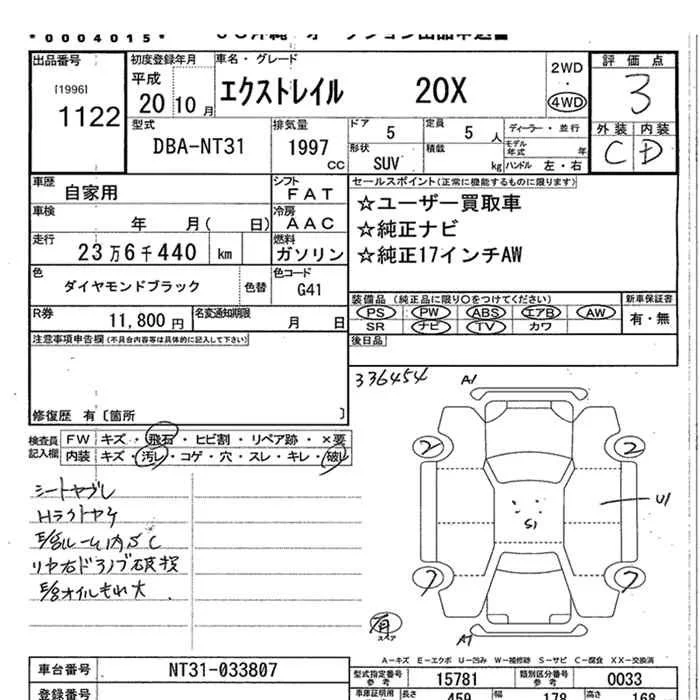 *0004015*
出品番号 初度登録年月 車名・グレード 評価点
[1996] 平成 2WD
1122 20 10月 エクストレイル 20X ・ 4WD 3
型式 排気量 ドア 定員 ディーラー・並行 外装 内装
DBA-NT31 1997 CC 5 5 人 モデル年式 年 C D
形状 積載
SUV kg ハンドル 左・右
車歴 自家用 シフト FAT セールスポイント(正常に機能するものに限ります)
車検 年 月( 日) 冷房 AAC ☆ユーザー買取車
走行 23万6千440 km 燃料 ガソリン ☆純正ナビ
☆純正17インチAW
色 ダイヤモンドブラック 色替 色コード G41
装備品 (純正品に限り○をつけてください) 新車保証書
R券 11,800円 名変通知期限 月 日 PS PW ABS エアB AW 有・無
SR ナビ TV カワ
注意事項申告欄(不具合内容等は具体的に記入して下さい) 後日品
336454 A1
修復歴 有〔箇所 〕
検査員記入欄 FW キズ・飛石・ヒビ割・リペア跡・×要
内装 キズ・汚レ・コゲ・穴・スレ・キレ・破レ
2 2
シートヤブレ
U1
S1
リヤ右ドアノブ破損
E/gオイルもれ大
7 7
有
スペア A1
A-キズ E-エクボ U-凹み W-補修跡 S-サビ C-腐食 XX-交換済
車台番号 NT31-033807 型式指定番号 参考 15781 類別区分番号 参考 0033
登録番号 車庫証明用 長さ 459 幅 178 高さ 168